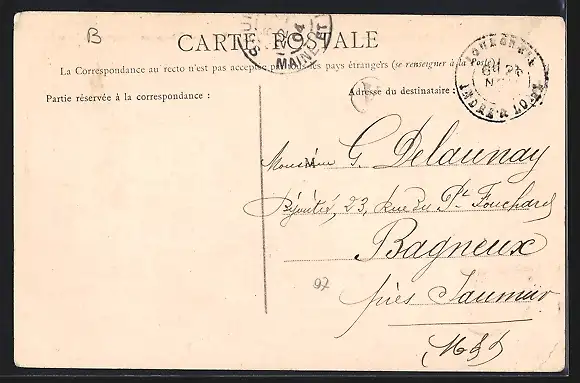 B
CARTE POSTALE
La Correspondance au recto n'est pas acceptée par tous les pays étrangers (se renseigner à la Poste)
Partie réservée à la correspondance :
Adresse du destinataire :
MAINE ET
04
INDRE & LOIRE
Monsieur G. Delaunay
Bijoutier, 23, Rue du Pt. Fouchard
Bagneux
près Saumur
M & L
97